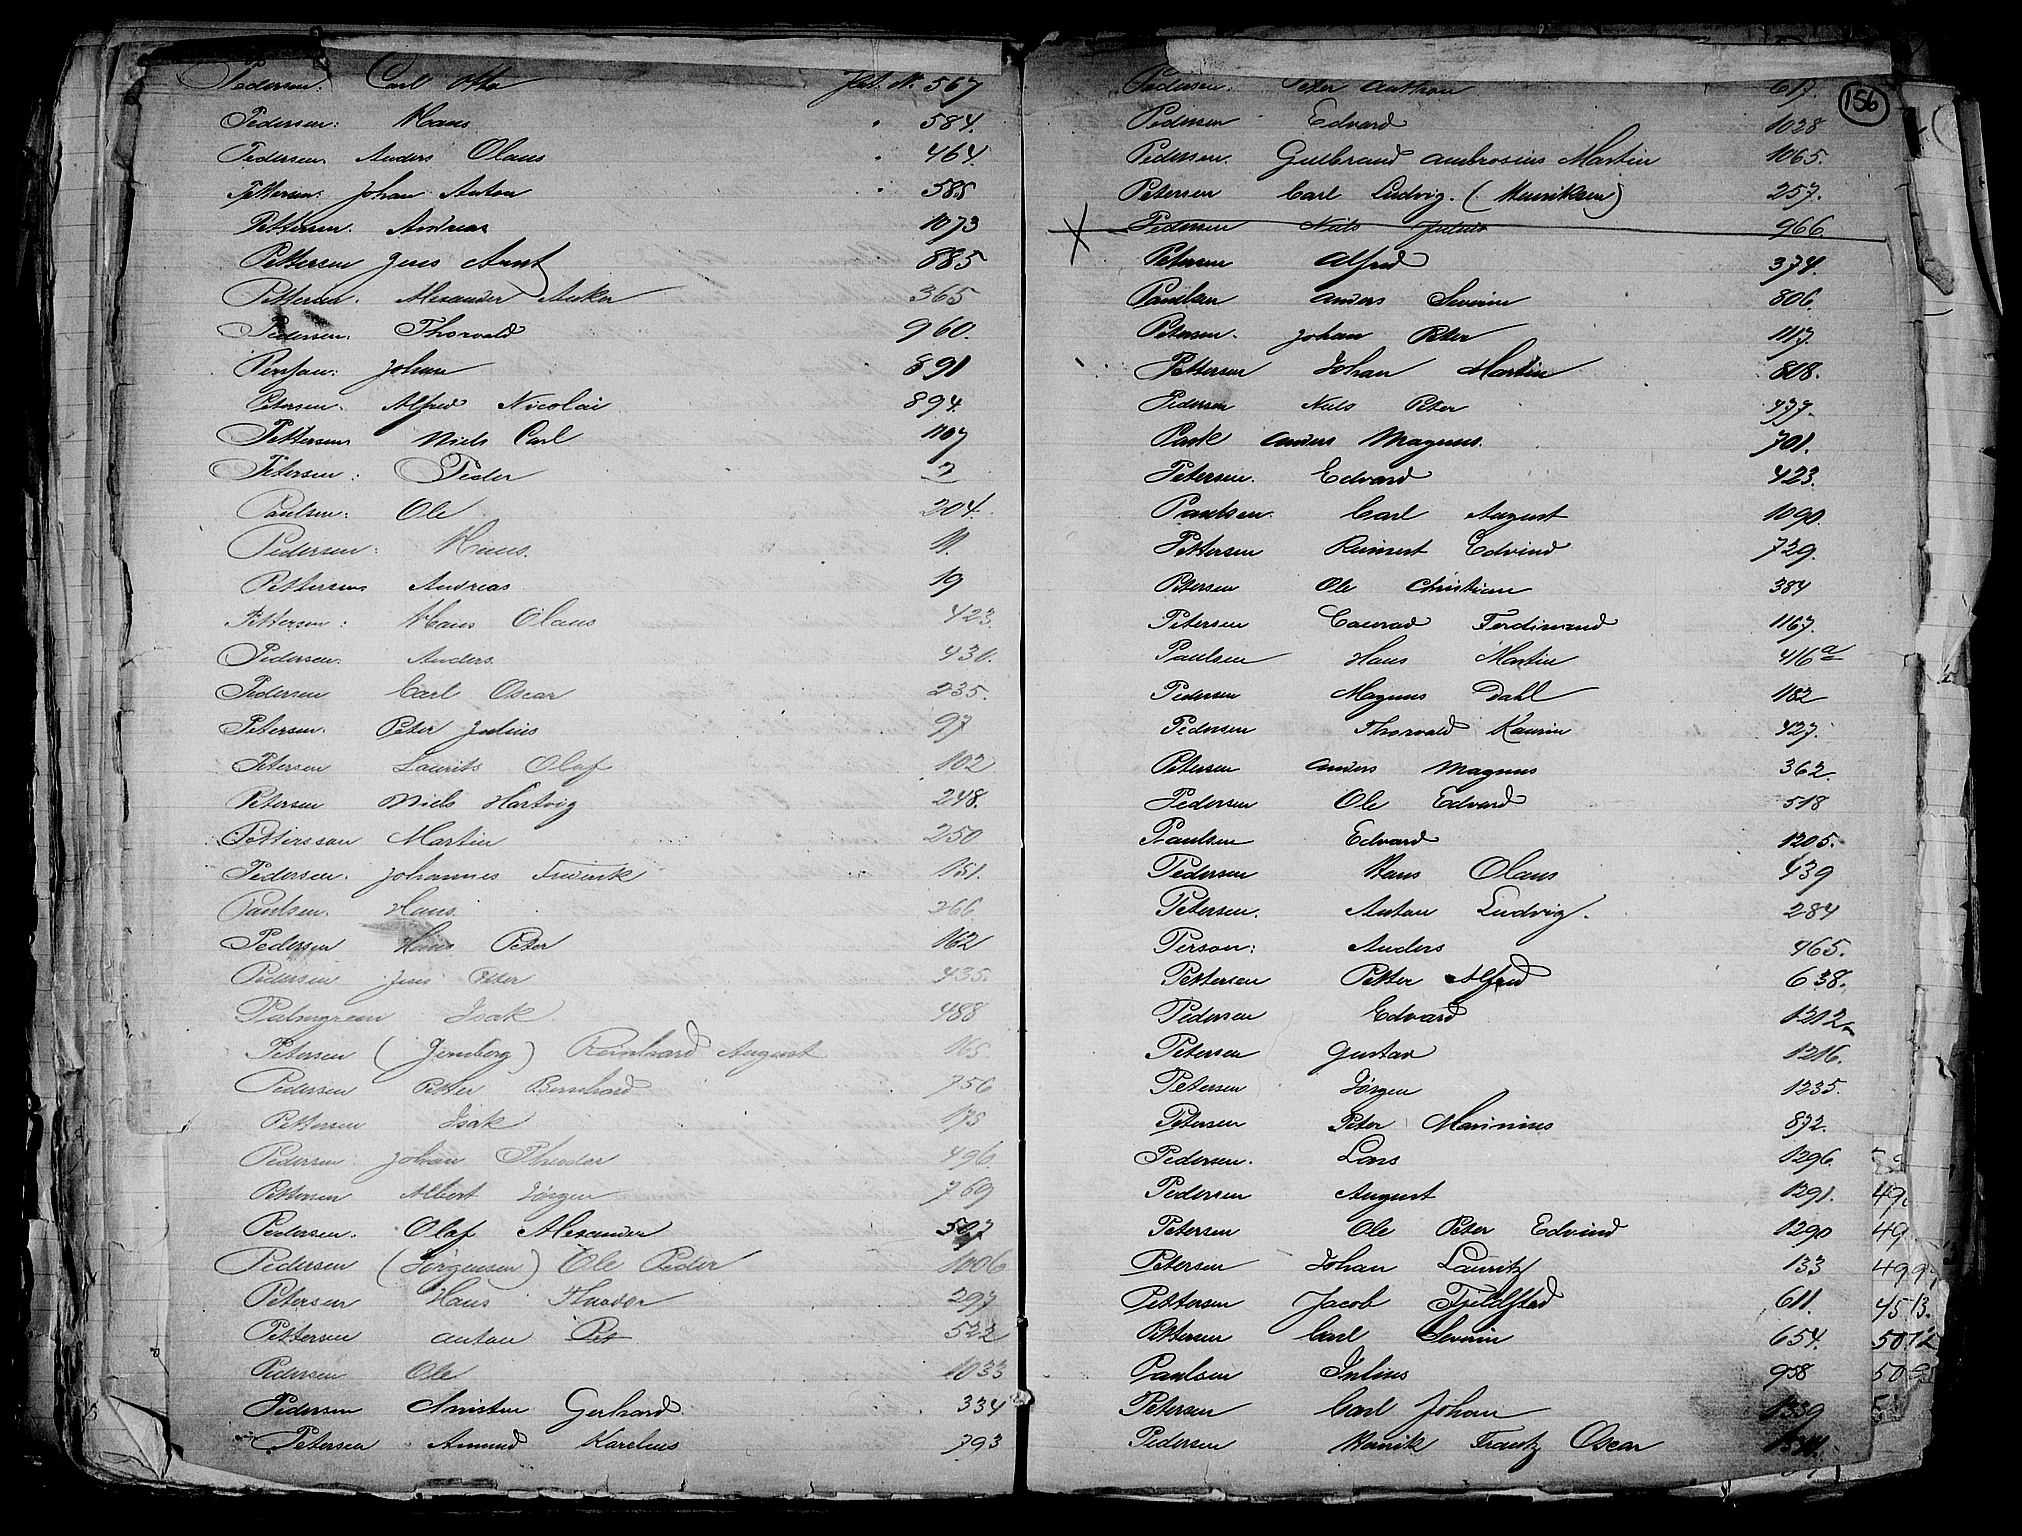 Pedersen. Carl Otto 567
Pedersen: Hans 584.
Pedersen Anders Olaus 464.
Pettersen. Johan Anton 585
Pettersen. Andreas 1073
Pettersen Jens Arnt 885
Pettersen. Alexander Anker 365
Pedersen. Thorvald 960.
Johan 891
Petersen. Alfred Nicolai 894.
Pettersen Niels Carl 1107
Petersen: Peder 2
Paulsen: Ole 204.
Pedersen: Hans. 11.
Pettersen Andreas. 19
Pettersen: Hans Olaus 423.
Pedersen. Anders. 430.
Pedersen Carl Oscar 235.
Petersen. Peter Julius 97
Petersen Laurits Olaf 102
Petersen Niels Hartvig 248.
Pettersson Martin 250
Pedersen. Johannes 151.
Paulsen. Hans. 266
Pedersen Hans Peter 162
Pedersen Jens Peter 435.
Palmgreen Isak 488
Petersen (Jernberg) Reinhard August 165
Pedersen Petter Bernhard 756
Pettersen Isak 175
Pedersen Johan Theodor 496.
Pettersen Albert Jørgen 769
Pedersen. Olaf Alexander 507
Pedersen (Jørgensen) Ole Peder 1006
Petersen Hans Thodor 297
Pettersen Anton Pet 522
Pedersen Ole 1033
Pedersen Gerhard. 334
Petersen Amund Karelius 793
156
Pedersen. Peter Anthon 617.
Pedersen Edvard 1028
Pedersen. Gulbrand Ambrosius Martin 1065.
Petersen Carl Ludvig. (Henriksen) 257.
X Pedersen Niels Julius 966.
Petersen Alfred 374.
Paulsen Anders Severin 806.
Petersen. Johan Peter 1117.
Pettersen Johan Martin 808.
Pedersen Niels Peter 477.
Anders Magnus. 701.
Petersen. Edvard 423.
Paulsen. Carl August 1090.
Pettersen Reinert Edvind 729.
Pettersen Ole Christian 384
Petersen Conrad Ferdinand 1167.
Paulsen Hans Martin 416 a
Pedersen Magnus Dahl 1182
Pedersen Thorvald Kaurin 427.
Petersen Anders Magnus 362.
Pedersen Ole Edvard 518
Paulsen Edvard 1205.
Pedersen Hans Olaus 439
Petersen. Anton Ludvig. 284
Person: Anders 465.
Pettersen Petter Alfred 638.
Pedersen Edvard 1212
Petersen Gustav 1216.
Petersen Jørgen 1235.
Petersen Peter Marinius 872.
Pedersen. Lars 1296.
Pedersen August 1291. 49.
Petersen Ole Peter Edvind 1290 49
Petersen Johan Lauritz 133 499
Pettersen Jacob Fjeldsted 611. 4513.
Pettersen Carl Severin 654. 5012
Paulsen Julius 958
Petersen Carl Johan 1339
Pedersen Henrik Frantz Oscar